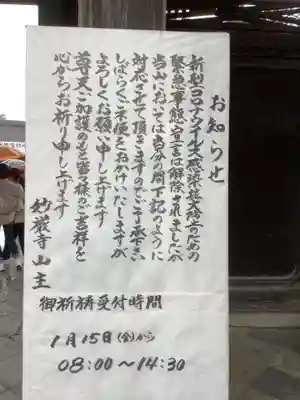 お知らせ
新型コロナウイルス感染拡大防止のための
緊急事態宣言は解除されましたが
当山においては当分の間下記のように
対応させて頂きますのでご了承下さい
しばらくご不便をおかけいたしますが
よろしくお願い申し上げます
尊天ご加護のもと皆々様のご吉祥を
心からお祈り申し上げます
妙厳寺山主
御祈祷受付時間
1月15日(金)から
08:00〜14:30